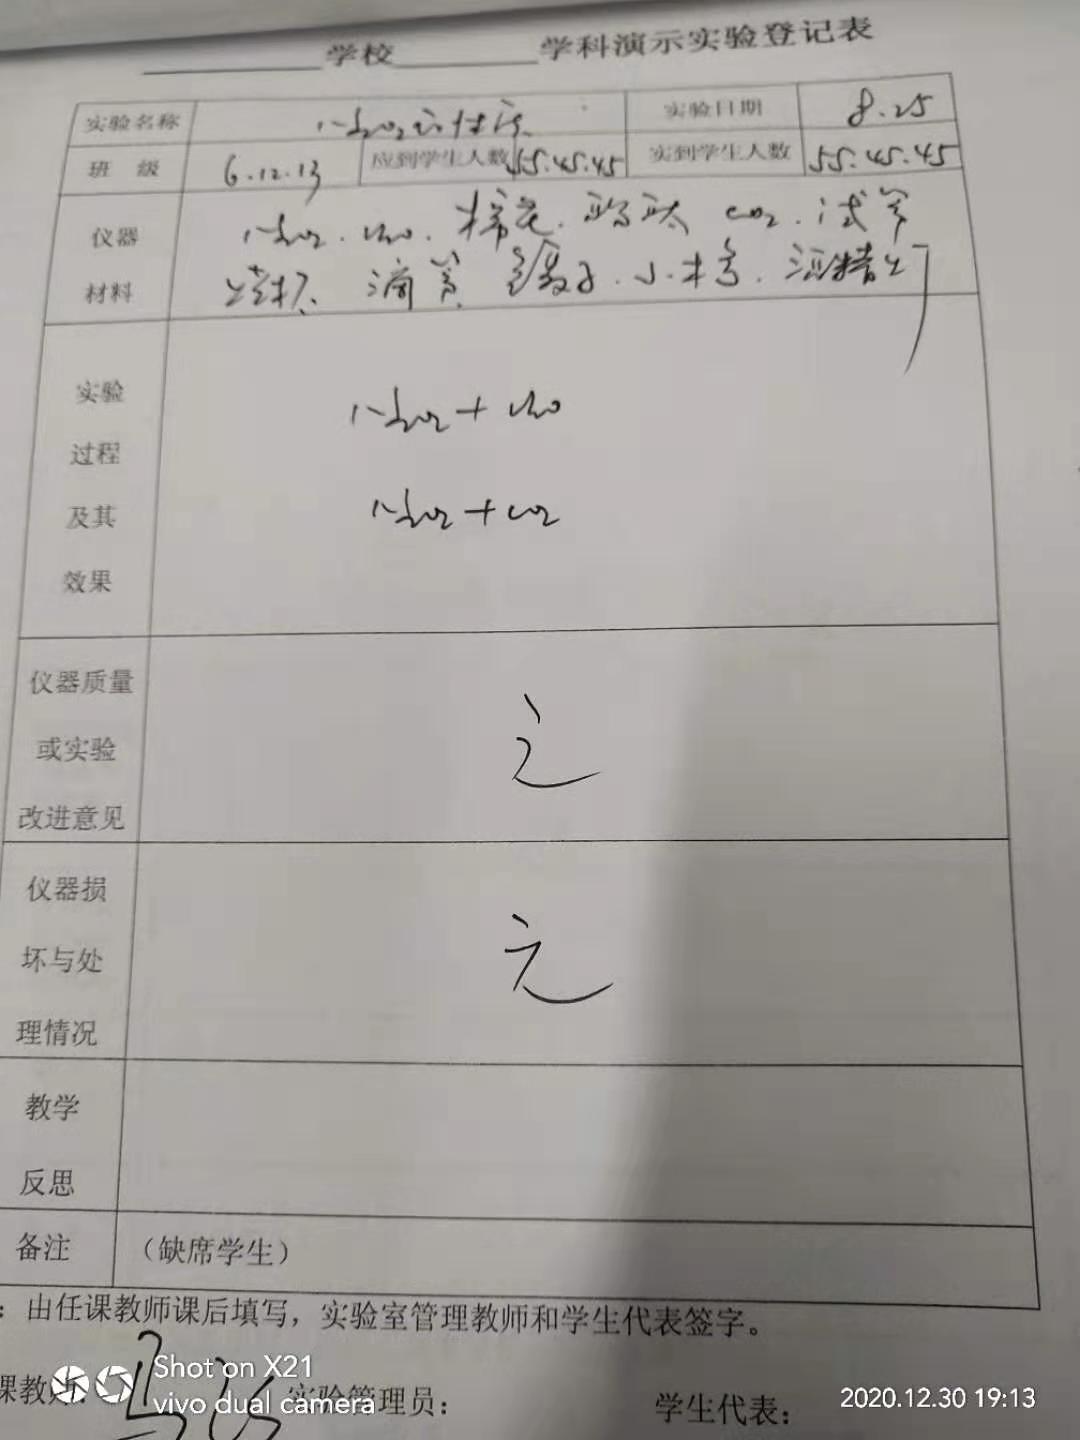 学校 学科演示实验登记表
实验名称 Na2O2的性质 实验日期 8.25
班 级 6.12.13 应到学生人数 55.45.45 实到学生人数 55.45.45
仪器 Na2O2. H2O. 棉花. 酚酞 CO2. 试管
材料 烧杯. 滴管 镊子. 小木条. 酒精灯
实验
过程 Na2O2 + H2O
及其 Na2O2 + CO2
效果
仪器质量
或实验
改进意见
仪器损
坏与处 无
理情况
教学
反思
备注 （缺席学生）
：由任课教师课后填写，实验室管理教师和学生代表签字。
课教师： 实验管理员： 学生代表：
Shot on X21
vivo dual camera
2020.12.30 19:13